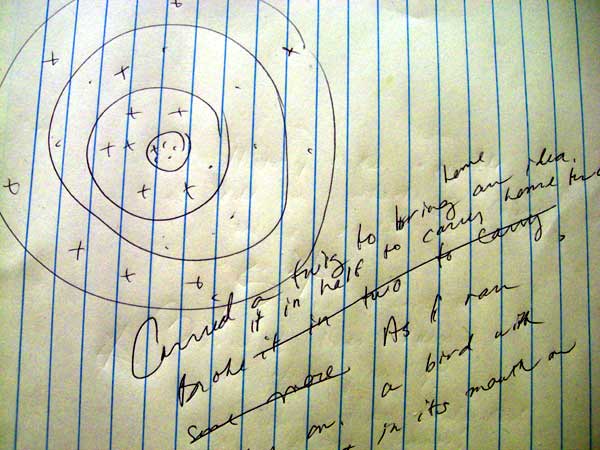 home
Carried a twig to bring an idea.
it in half to carry home
Broke it in two to carry,
some more As I ran
on. a bird with
in its mouth on